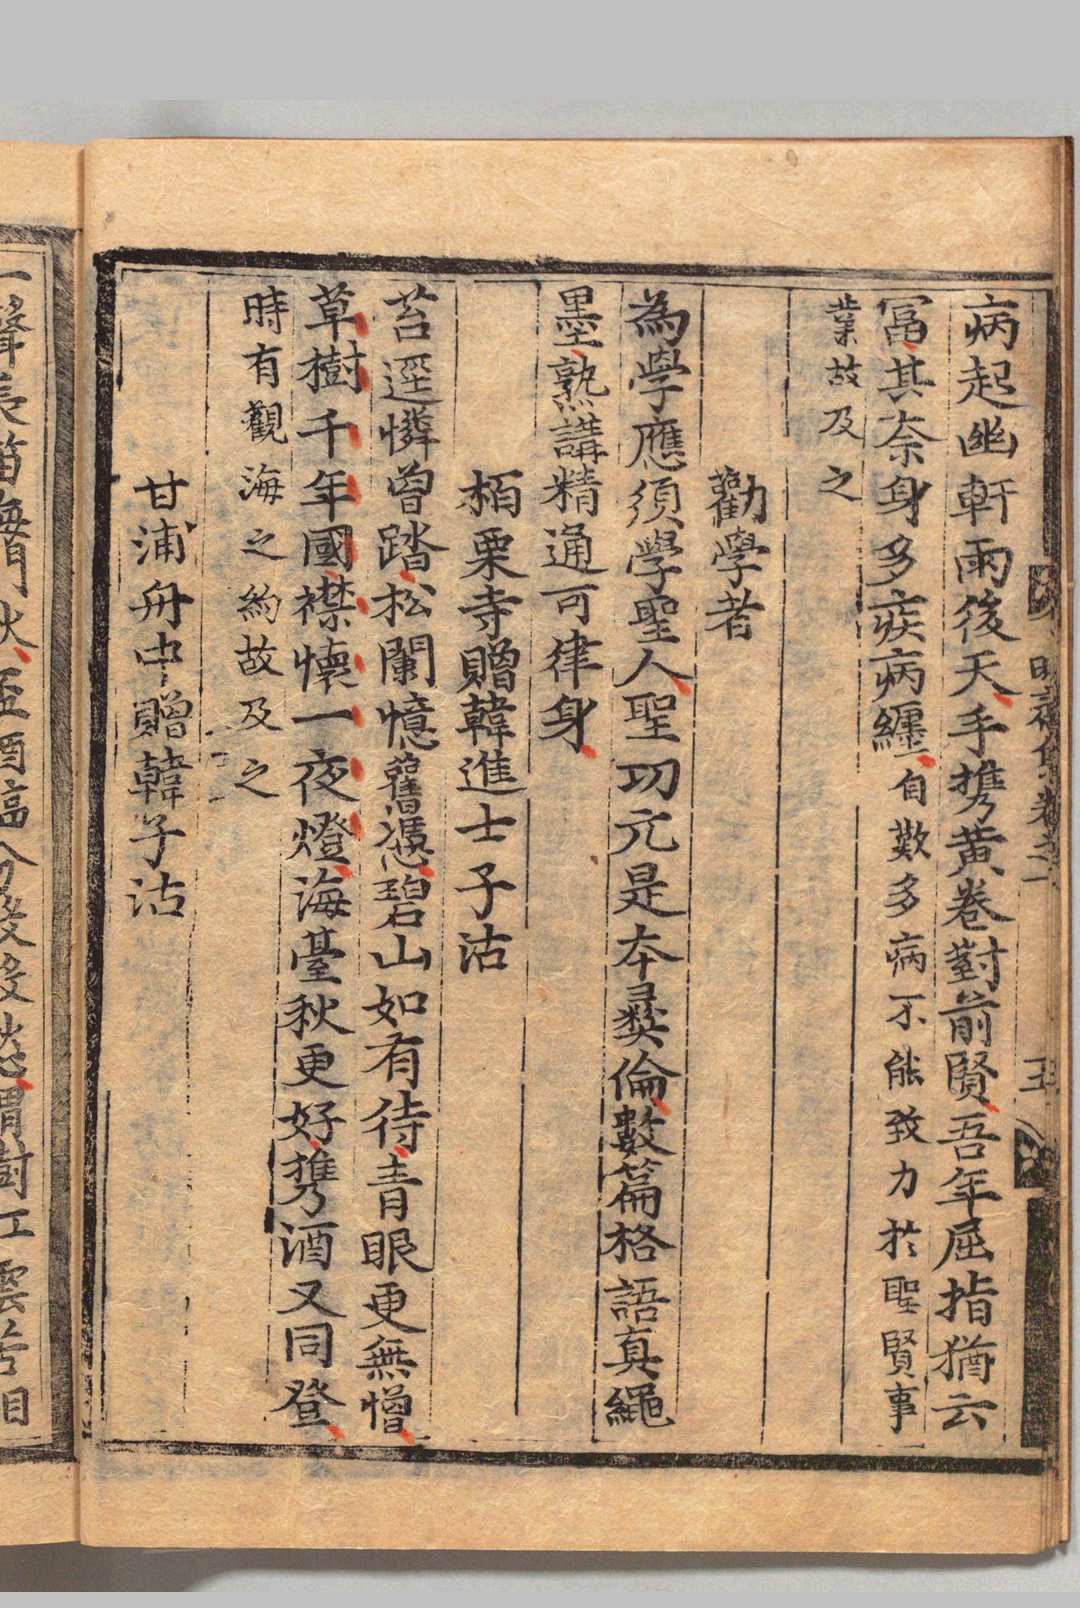 病起幽軒雨後天手携黃卷對前賢吾年屈指猶云
冨其奈身多疾病纏自歎多病不能致力於聖賢事
業故及之
勸學者
為學應須學聖人聖功元是本彛倫數篇格語真繩
墨熟講精通可律身
栢栗寺贈韓進士子沽
苔逕憐曾踏松闌憶舊憑碧山如有待青眼更無憎
草樹千年國襟懷一夜燈海臺秋更好携酒又同登
時有觀海之約故及之
甘浦舟中贈韓子沽
一聲長笛海門秋盃酒臨分